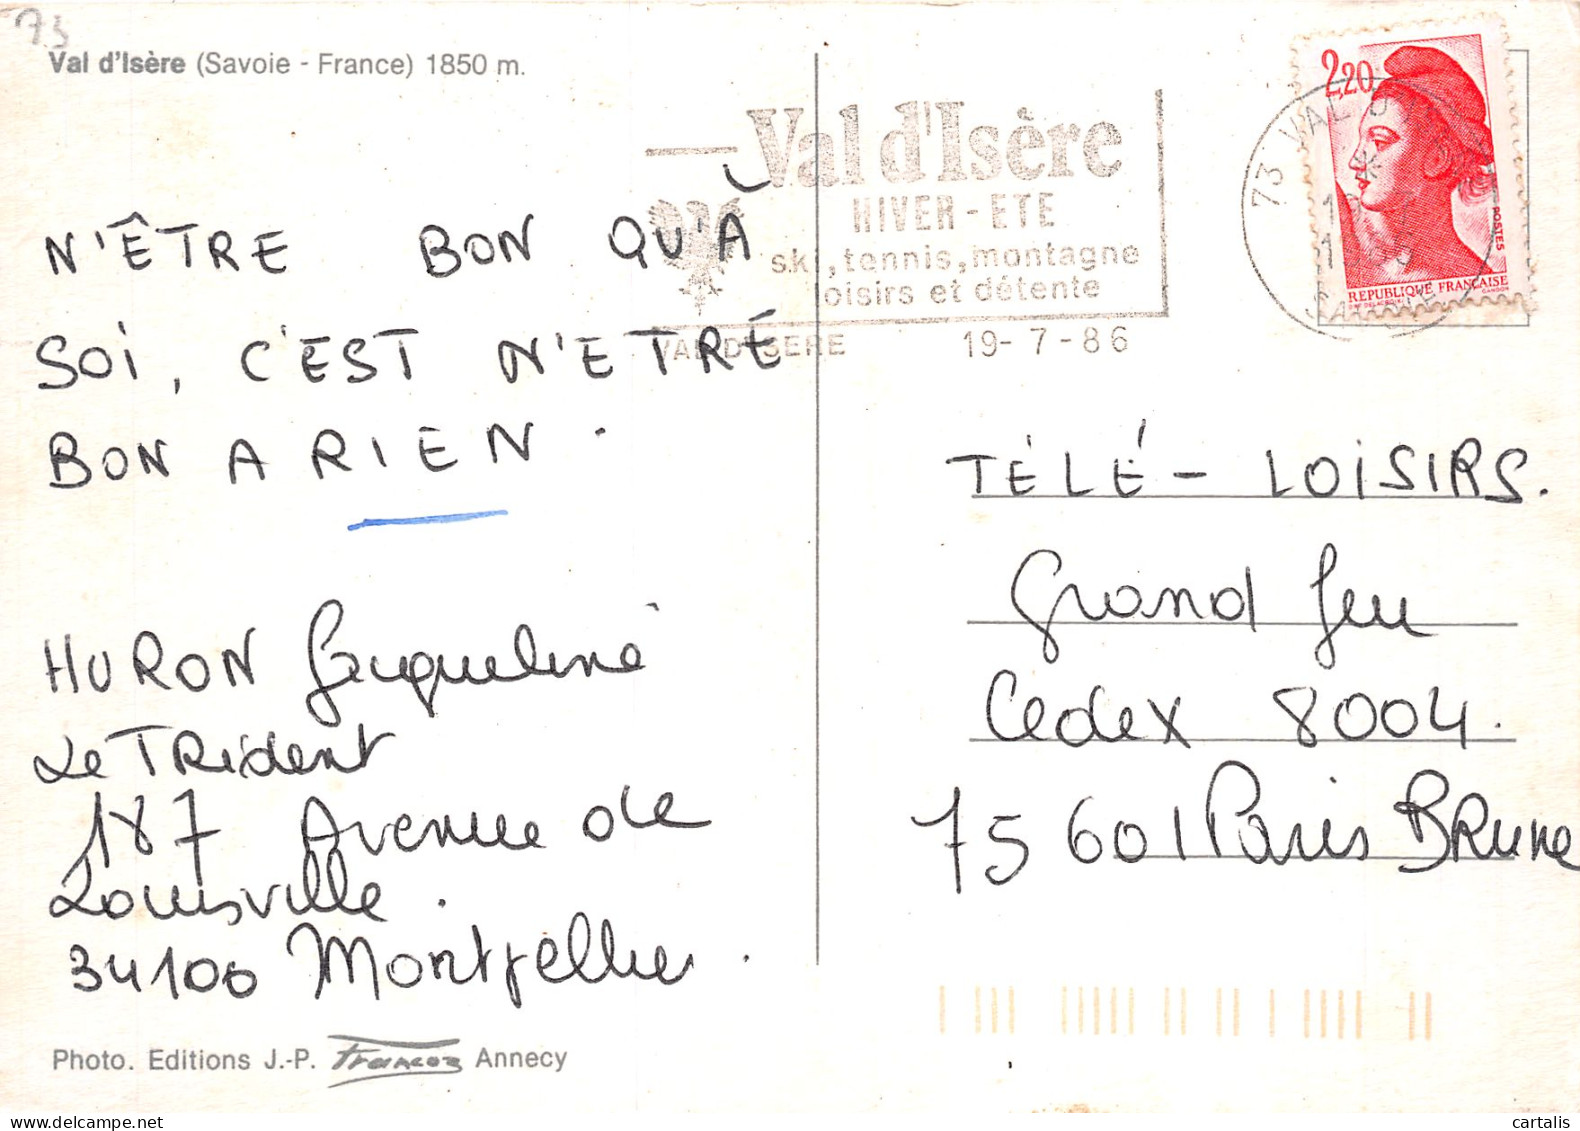 73
Val d'Isère (Savoie - France) 1850 m.
Val d'Isère
HIVER - ETE
ski, tennis, montagne
loisirs et détente
VAL D'ISERE 19-7-86
2,20
POSTES
REPUBLIQUE FRANÇAISE
73 VAL D'
SAVOIE
N'ÊTRE BON QU'À
SOI, C'EST N'ETRE
BON A RIEN.
HURON Jacqueline
Le TRident
187 Avenue de
Louisville.
34100 Montpellier.
TÉLÉ - LOISIRS.
Grand Jeu
Cedex 8004.
75601 Paris BRune
Photo. Editions J.-P. Francoz Annecy
cartalis